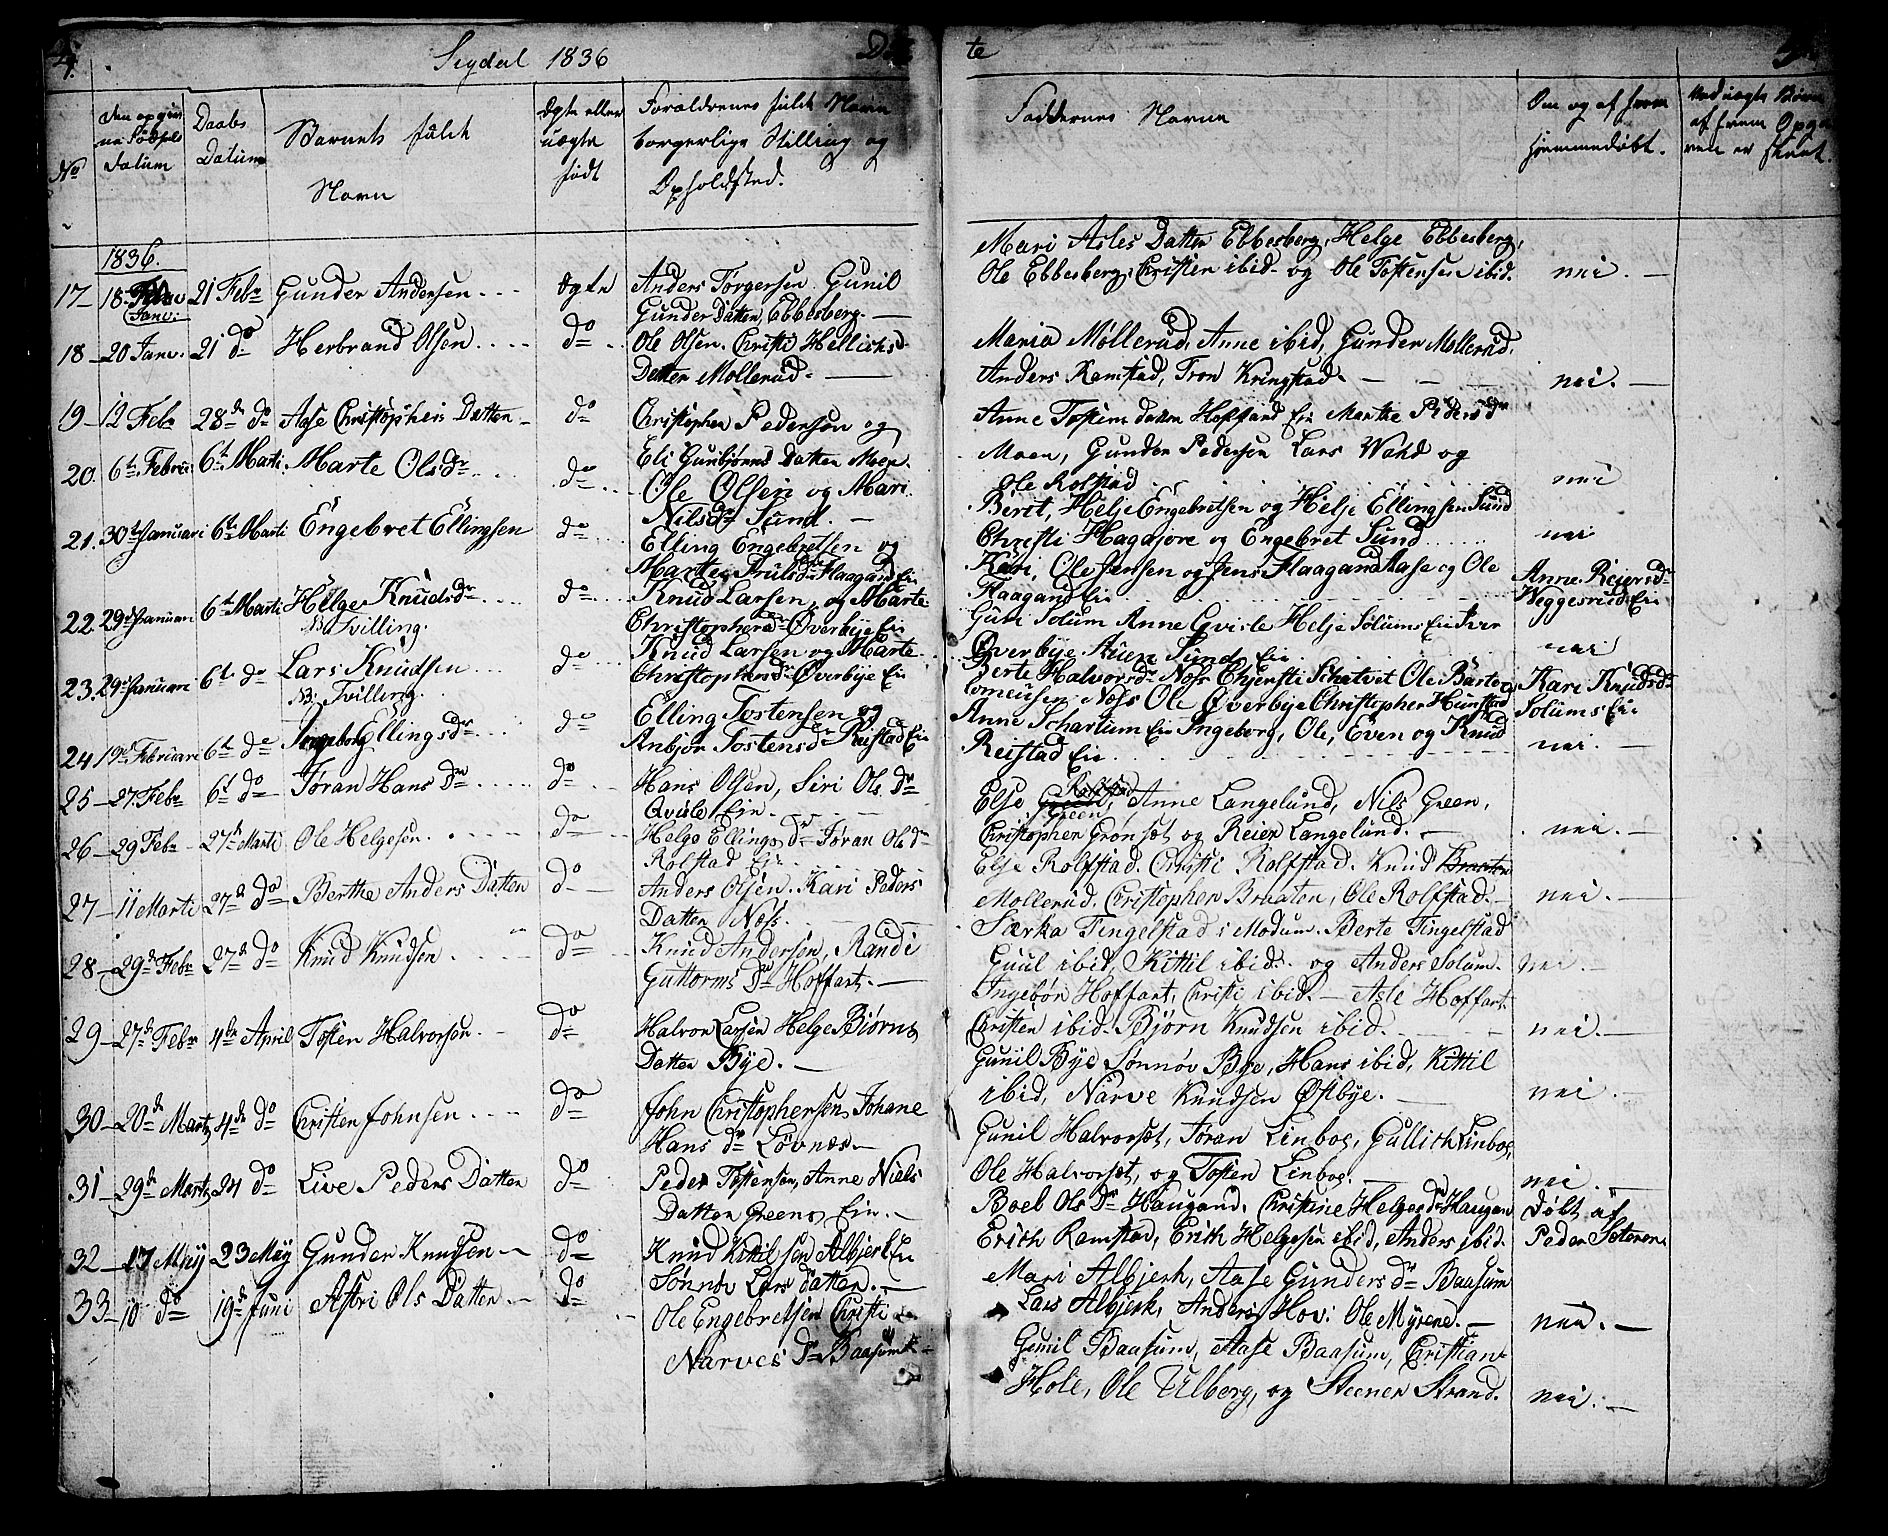 4.
Sigdal 1836
Døb
te
5.
No
Den opgivne Fødsels Datum
Daabs Datum
Barnets fulde Navn
Ægte eller uægte født
Foraldrenes fulde Navn borgerlige Stilling og Opholdssted.
Faddernes Navne
Om og af hvem hjemmedøbt.
Ved uægte Børn af hvem Opga ven er skeet.
1836.
17 – 18 Janv: 21 Febr Gunder Andersen Ægte Anders Torgersen. Gunil
Gunder Datter Ebbesberg. –
Mari Asles Datter Ebbesberg, Helge Ebbesberg,
Ole Ebbesberg, Christen ibid. og Ole Tostensen ibid. nei. –
18 – 20 Janv. 21 do Herbrand Olsen do Ole Olsen. Christi Hellichs
Datter Mollerud. –
Maria Møllerud, Anne ibid, Gunder Mollerud,
Anders Ramstad, Tron Kringstad. – nei. –
19 – 12 Febr 28de do Aase Christophers Datter do Christopher Pedersøn og
Eli Gunbjørns Datter Moen.
Anne Tostens datter Hoffard Eie Marthe Peders dr
Moen, Gunder Pedersen Lars Wahd og
Ole Rolfstad nei
20. 6te Febru 6te Marti. Marte Olsdr do Ole Olsen og Mari
Nilsdr Sund. –
Beret, Helje Engebretsen og Helje Ellingsen Sund
Christi Hagasore og Engebret Sund nei
21. 30te Januari 6te Marti Engebret Ellingsen do Elling Engebretsen og
Marte Trulsdr Flaagand Eie
Kari, Ole Jensen og Jens Flaagand Aase og Ole
Flaagand Eie Anne Reiersdr
Weggesrud Eie
22 29de Januari 6te Marti Helge Knudsdr
NB Tvilling.
do Knud Larsen og Marte
Christophersdr Øverbye Eie
Guri Solum Anne Qvisle Helje Solums Eie Iver
Øverbye Auen Sund Eie nei
23. 29de Januari 6te do Lars Knudsen
NB. Tvilling.
do Knud Larsen og Marte
Christophersdr Øverbye Eie
Berte Halvorsdr Næss Chjersti Schatvet Ole Barto
lomeusen Næss Ole Øverbye Christopher Hiunstad Kari Knudsdr
Solums Eie
24 19de Februari 6te do Ingeborg Ellingsdr do Elling Tostensen og
Anbjør Tostensdr Reistad Eie
Anne Schartum Eie Ingeborg, Ole, Even og Knud
Reistad Eie nei. –
25 – 27 Febr 6te do Tøran Hans Dr do Hans Olsen, Siri Ols Dr
Qvisle Eie.
Else Rolfstad Green, Anne Langelund, Nils Green,
Christopher Grønset og Reier Langelund. – nei. –
26 – 29 Febr – 27de Marti Ole Helgesen. do Helge Ellings Dr Tøran Ols dr
Rolstad Eie.
Else Rolfstad. Christi Rolfstad. Knud Braaten
Mollerud. Christopher Braaten, Ole Rolfstad. – nei. –
27 – 11 Marti 27de do Berthe Anders Datter do Anders Olsen. Kari Peders
Datter Næss.
Særka Tingelstad i Modum. Berte Tingelstad
Guul ibid, Kittil ibid. og Anders Solum. nei. –
28 – 29de Febr 27de do Knud Knudsen do Knud Andersen, Randi
Guttorms Dr Hoffart. –
Ingebør Hoffart, Christi ibid. – Asle Hoffart.
Christen ibid. Bjørn Knudsen ibid. nei. –
29 – 27de Febr 4de April Tosten Halvorsen. do Halvor Larsen Helge Biørns
Datter Bye. –
Gunil Bye Sønnøv Bye, Hans ibid, Kittil
ibid, Narve Knudsen Østbye. – nei. –
30 – 20de Martz 4de do Christen Johnsen do John Christophersen, Johane
Hans dr Løvnæs. –
Gunil Halvorset, Tøran Linbog, Gullich Linbog,
Ole Halvorset, og Tosten Linbog. – nei. –
31 – 29de Martz 24 do Live Peders Datter do Peder Tostensen, Anne Niels
Datter Greens Eie. –
Boel Ols Dr Haugand. Christine Helges dr Haugan
Erich Ramstad, Erich Helgesen ibid, Anders ibid. Døbt af
Peder Sæteren
32 – 17 Maij 23 Maij Gunder Knudsen – do Knud Kittilsen Albjerk Eie
Sønnøv Lars datter. –
Mari Albjerk, Aase Gunders dr Baasum
Lars Albjerk, Anders Hov: Ole Myrene. – nei. –
33 – 10 do 19de Juni Astri Ols Datter – do Ole Engebretsen Christi
Narves Dr Baasum –
Gunil Baasum, Aase Baasum, Christian
Hole, Ole Ulberg, og Steener Strand. nei. –